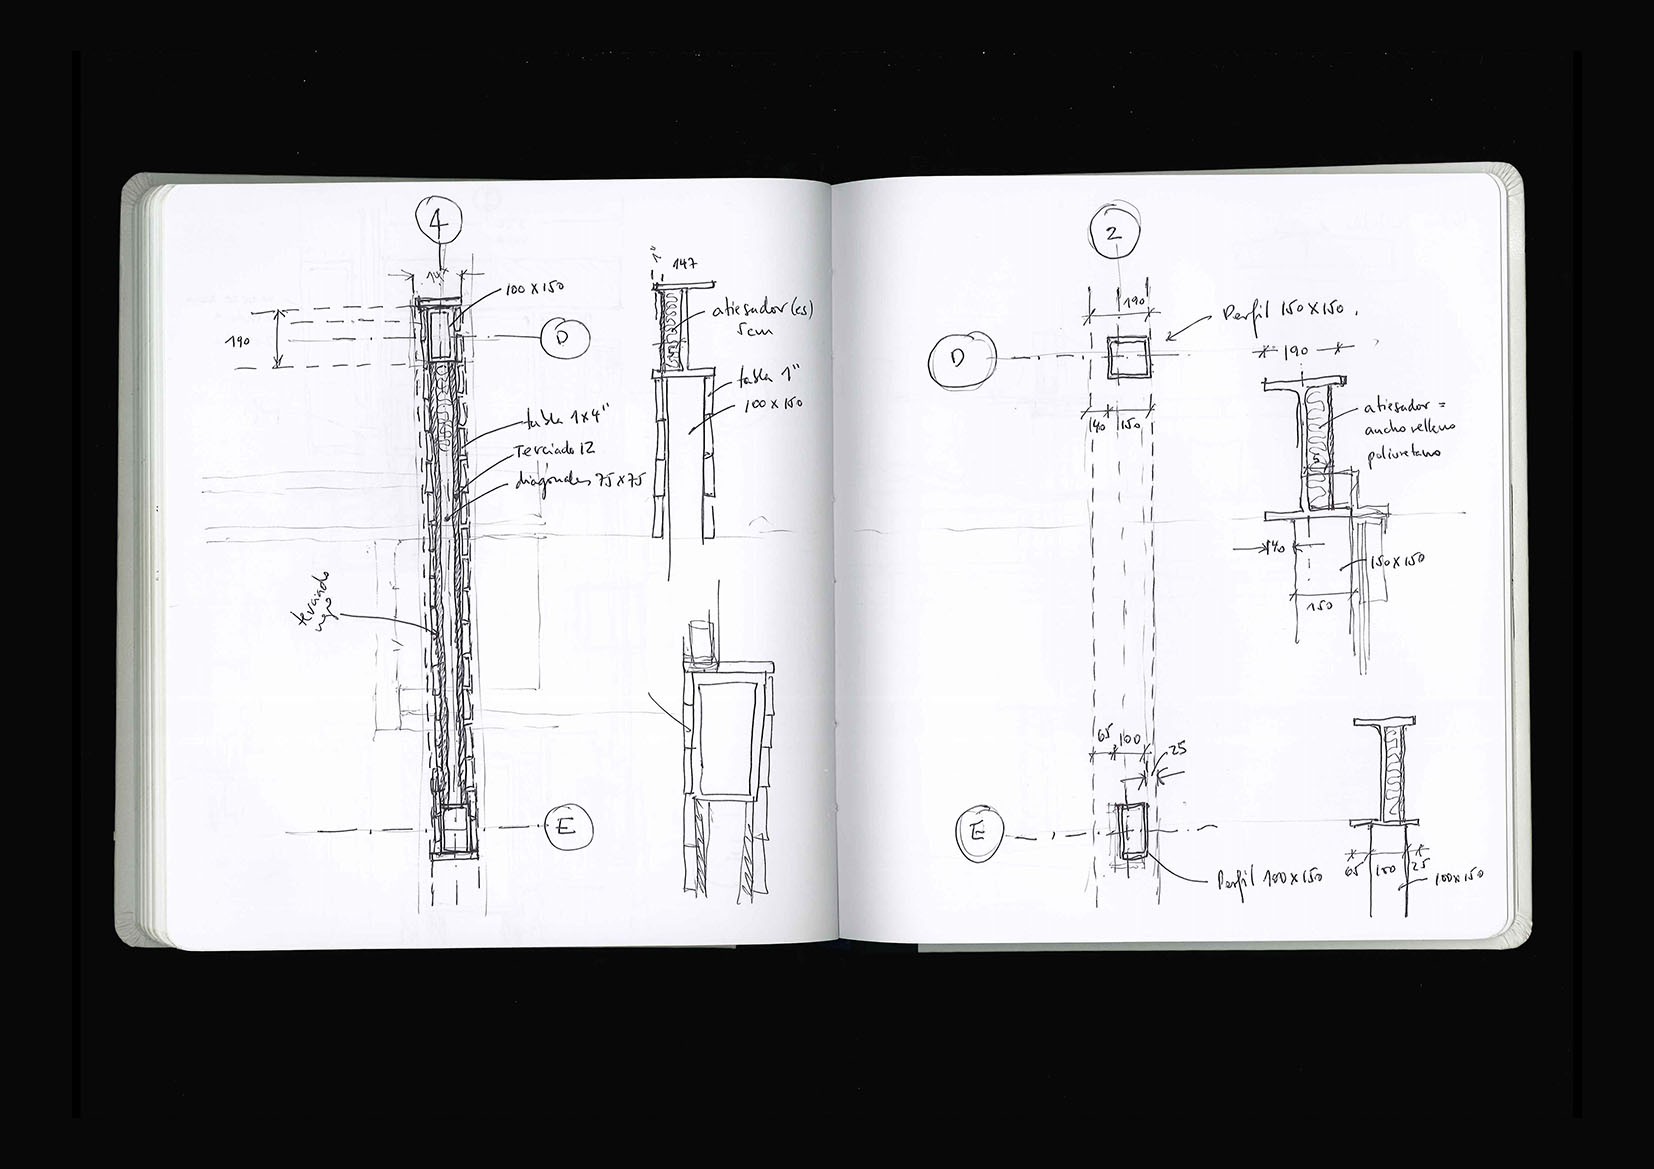 4
100 x 150
190
D
tabla 1x4"
Terciado 12
diagonales 75x75
terciado
negro
E
1"
147
atiesador(es)
5cm
tabla 1"
100 x 150
2
190
Perfil 150 x 150.
D
40
150
190
atiesador =
ancho relleno
poliuretano
5
40
150x150
150
65
100
25
E
Perfil 100x150
65
100
25
100x150